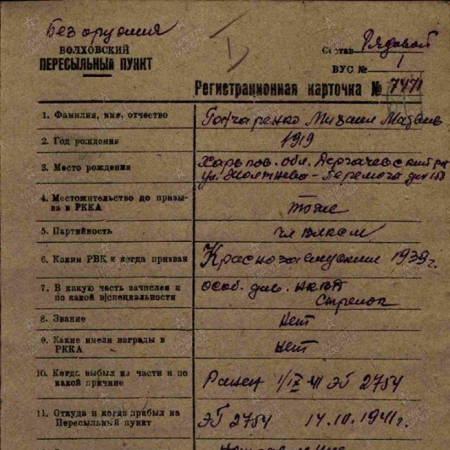 Без оружия
ВОЛХОВСКИЙ
ПЕРЕСЫЛЬНЫЙ ПУНКТ
Состав Рядовой
ВУС № 1
Регистрационная карточка № 7471
1. Фамилия, имя, отчество Гончаренко Михаил
2. Год рождения 1919
3. Место рождения Харьков. обл. Дергачевский р-н
4. Местожительство до призыва в РККА тоже
5. Партийность чл влксм
6. Каким РВК и когда призван 1939 г.
7. В какую часть зачислен и по какой в|специальности особ. див. НКВД
Стрелок
8. Звание нет
9. Какие имели награды в РККА нет
10. Когда выбыл из части и по какой причине Ранен 1/IX 41 ЭГ 2754
11. Откуда и когда прибыл на Пересыльный пункт ЭГ 2754 14.10.1941г.